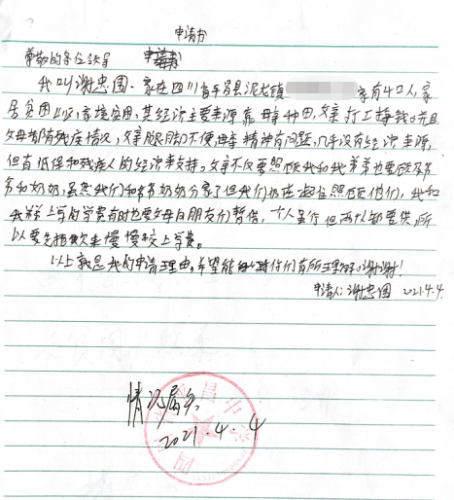 申请书
尊敬的各位领导 申请书
我叫谢忠国、家在四川省平昌县泥龙镇 家有4口人,家
居贫困山区,家境贫困,其经济主要来源靠母亲种田,父亲打工挣钱。而且
父母都有残疾情况,父亲腿脚不便,母亲精神有问题,几乎没有经济来源,
但有低保和残疾人的经济来支持。父亲不仅要照顾我和我弟弟也要照顾爷
爷和奶奶,虽然我们和爷爷奶奶分家了但我们仍在一起住照顾他们,我和
我弟上学的学费有时也要父母向朋友们暂借,一个人还行但两人都要上,所
以要先把欠款慢慢交上学费。
以上就是我的申请理由。希望能 们有所理解。谢谢!
申请人:谢忠国 2021.4.4.
情况属实。
2021.4.4
四川 昌 中学